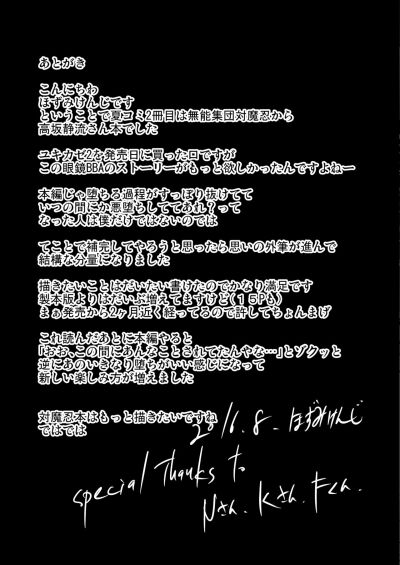 あとがき
こんにちわ
ほずみけんじです
ということで夏コミ2冊目は無能集団対魔忍から
高坂静流さん本でした
ユキカゼ2を発売日に買った口ですが
この眼鏡BBAのストーリーがもっと欲しかったんですよねー
本編じゃ堕ちる過程がすっぽり抜けてて
いつの間にか悪堕ちしててあれ？って
なった人は僕だけではないのでは
てことで補完してやろうと思ったら思いの外筆が進んで
結構な分量になりました
描きたいことはだいたい書けたのでかなり満足です
製本版よりはだいぶ増えてますけど（15Pも）
まぁ発売から2ヶ月近く経ってるので許してちょんまげ
これ読んだあとに本編やると
「おお、この間にあんなことされてたんやな…」とゾクッと
逆にあのいきなり堕ちがいい感じになって
新しい楽しみ方が増えました
対魔忍本はもっと描きたいですね
ではでは
2016.8. ほずみけんじ
special Thanks to
Nさん. Kさん. Fくん.